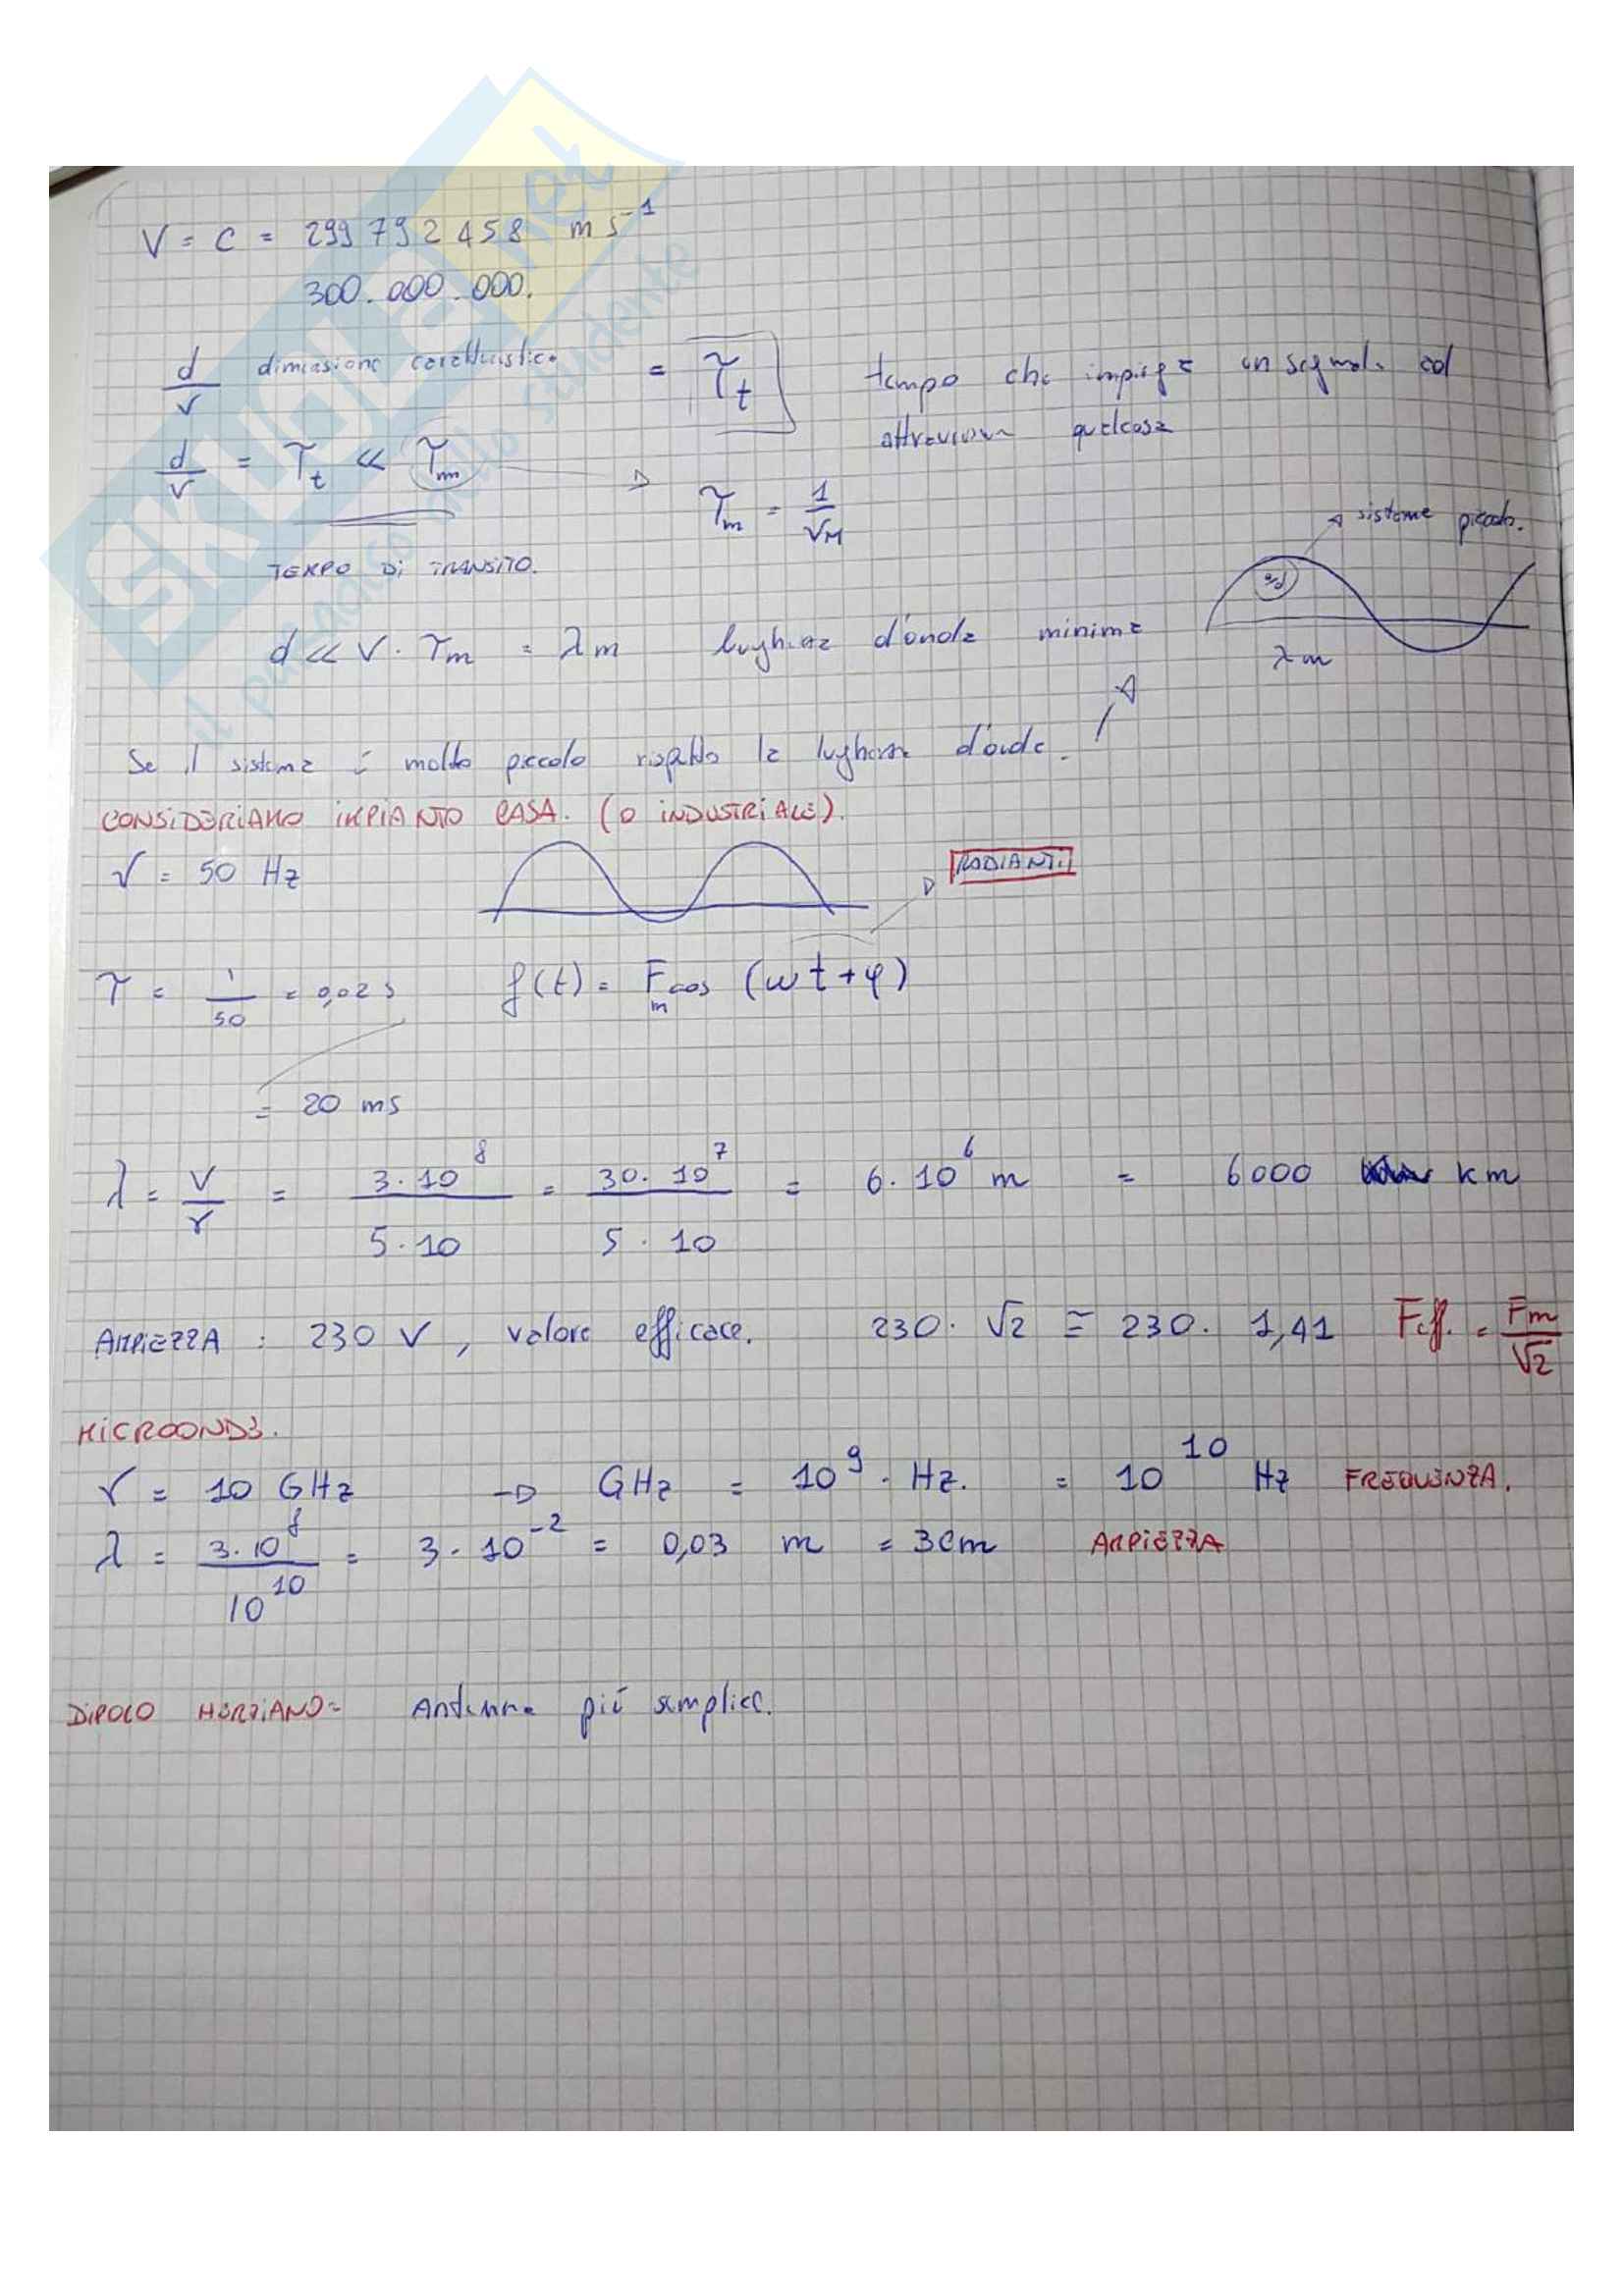 SKUOLA.net
il paradiso dello studente
V = C = 299 792 458 m s⁻¹
300.000.000.
d/v dimensione caratteristica = τt tempo che impiega un segnale ad
attraversare qualcosa
d/v = τt << τm → τm = 1/νM
TEMPO Di TRANSITO.
sistema piccolo.
d << V · τm = λm lunghezza d'onda minima
λm
Se il sistema è molto piccolo rispetto la lunghezza d'onda.
CONSiDERiAMO iMPiANTO CASA. (O iNDUSTRiALE).
ν = 50 Hz
RADIANTI
τ = 1/50 = 0,02 s f(t) = Fm cos (ωt+φ)
= 20 ms
λ = V/ν = 3·10⁸/5·10 = 30·10⁷/5·10 = 6·10⁶ m = 6000 km
AMPiEZZA : 230 V, valore efficace. 230·√2 ≅ 230· 1,41 Feff. = Fm/√2
MiCROONDE.
ν = 10 GHz → GHz = 10⁹· Hz. = 10¹⁰ Hz FREQUENZA.
λ = 3·10⁸/10¹⁰ = 3·10⁻² = 0,03 m = 3cm AMPiEZZA
DiPOLO HERZiANO= Antenna più semplice.